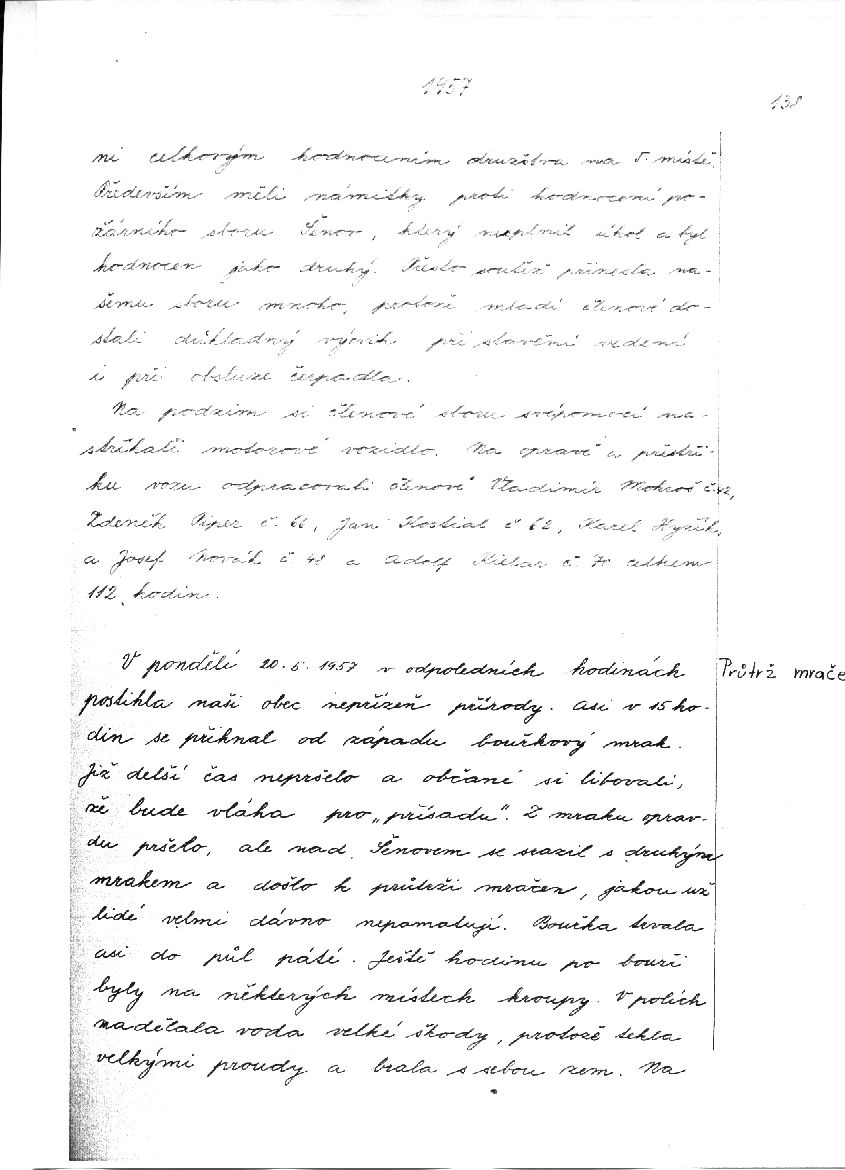 1957
138
ní celkovým hodnocením družstva na 5. místě.
Především měli námitky proti hodnocení po-
žárního sboru Šenov, který nesplnil úkol a byl
hodnocen jako druhý. Přesto soutěž přinesla na-
šemu sboru mnoho, protože mladí členové do-
stali důkladný výcvik při stavění vedení
i při obsluze čerpadla.
Na podzim si členové sboru svépomocí na-
stříkali motorové vozidlo. Na opravě a přestři-
ku vozu odpracovali členové Vladimír Mohroš č. 42,
Zdeněk Piper č. 66, Jan Kostial č. 62, Karel
a Josef Novák č. 48 a Adolf č. 70 celkem
112 hodin.
V pondělí 20. 5. 1957 v odpoledních hodinách
Průtrž mrače
postihla naši obec nepřízeň přírody. Asi v 15 ho-
din se přihnal od západu bouřkový mrak.
Již delší čas nepršelo a občané si libovali,
že bude vláha pro „přísadu". Z mraku oprav-
du pršelo, ale nad Šenovem se srazil s druhým
mrakem a došlo k průtrži mračen, jakou už
lidé velmi dávno nepamatují. Bouřka trvala
asi do půl páté. Ještě hodinu po bouři
byly na některých místech kroupy. V polích
nadělala voda velké škody, protože tekla
velkými proudy a brala s sebou zem. Na